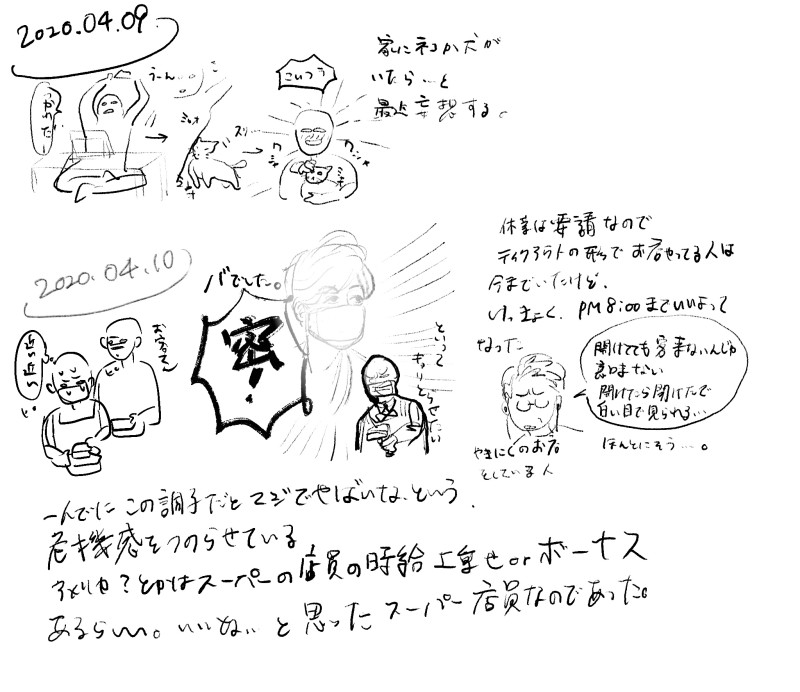 2020.04.09
家にネコか犬が
いたら…と
最近妄想する。
つかれたー
うーん…
ミャオ
スリ…
こいつぅ
ワシャ
ワシャ
ミャオ
2020.04.10
休業は要請なので
テイクアウトの形でお店やってる人は
今までいたけど、
けっきょく、PM8:00まで いいよって
なった
バでした。
密!
といって
きょりとらせたい
お客さん
近い近い
開けてても客来ないんじゃ
意味ない
開けたら開けたで
白い目で見られる…
やきにくのお店
をしている人
ほんとにそう…。
この調子だとマジでやばいな、という
危機感をつのらせている
アメリカ?とかはスーパーの店員の時給上乗せorボーナス
あるらしい。いいね… と思ったスーパー店員なのであった。